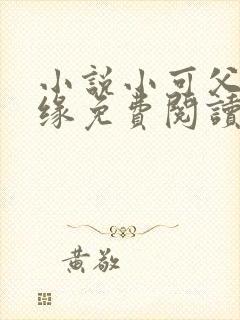 小説小可父
缘免費閱讀
黄敬